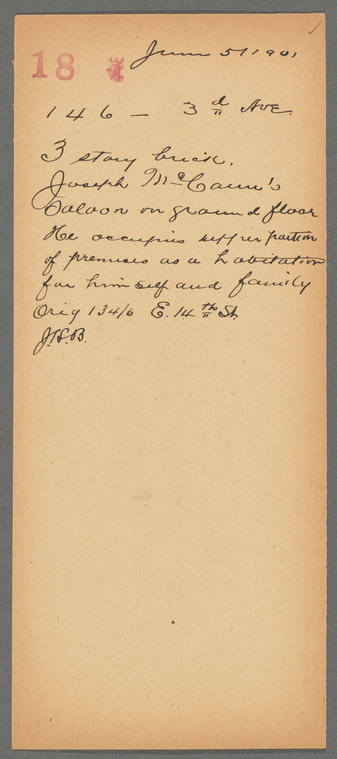 18
June 5/1901
146 — 3d Ave.
3 story brick.
Joseph McCann's
Saloon on ground floor
He occupies upper portion
of premises as a habitation
for himself and family
Orig 134/6 E. 14th St.
J.S.B.